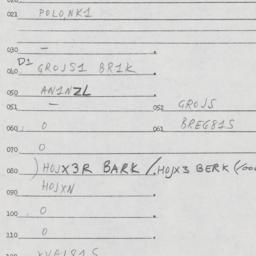 021 POLONK1
030 —
D1
040 GROJS1 BR1K
050 AN1NZL
051 — 052 GROJS
060 0 061 BREG81S
070 0
080 ) HOJX3R BARK / HOJX3 BERK
090 HOJXN
100 0
110 0